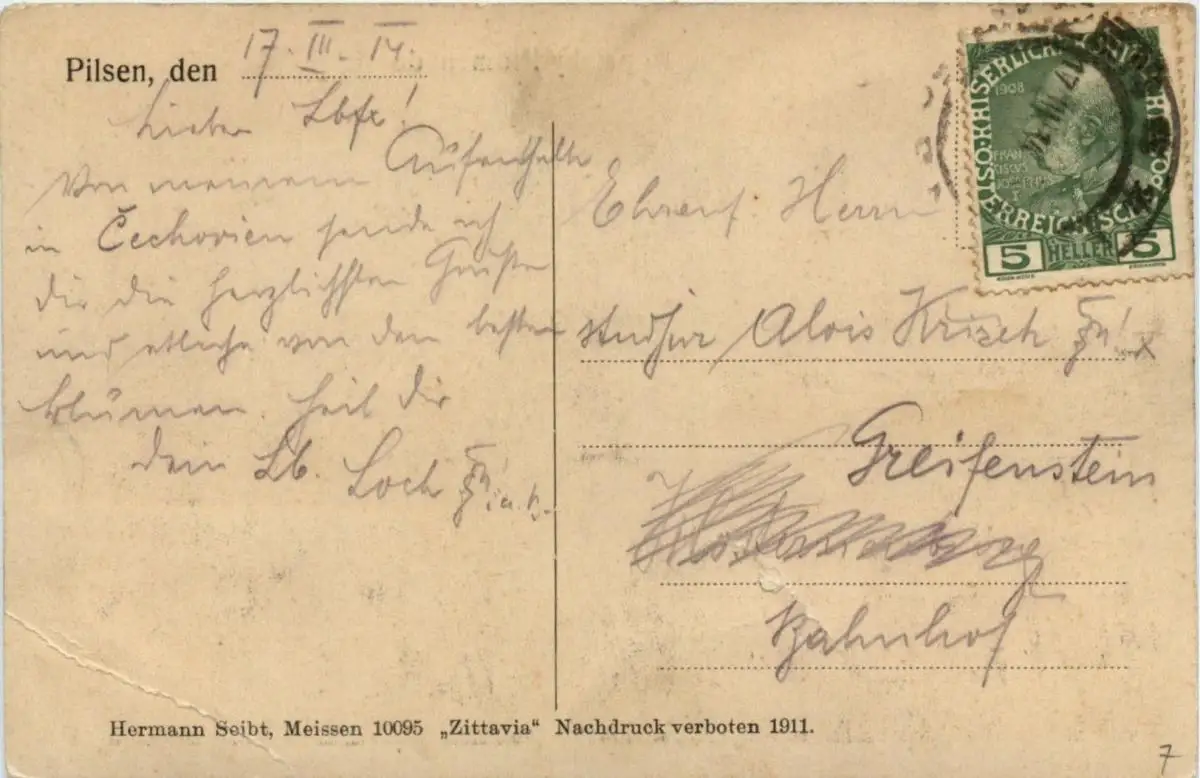 Pilsen, den 17. III. 14.
Lieber Lbfx!
Von meinem Aufenthalte
in Čechovien sende ich
dir die herzlichsten Grüße
und etliche von den besten
Blumen. Heil dir
dein Lb. Loch
Ehrenf. Herrn
stud jur Alois Krisch
Greifenstein
Bahnhof
ÖSTERREICHISCHE POST
KAISERLICHE KÖNIGLICHE
1908
FRANCISCUS JOSEPHUS I
5 HELLER 5
Hermann Seibt, Meissen 10095 „Zittavia“ Nachdruck verboten 1911.
7